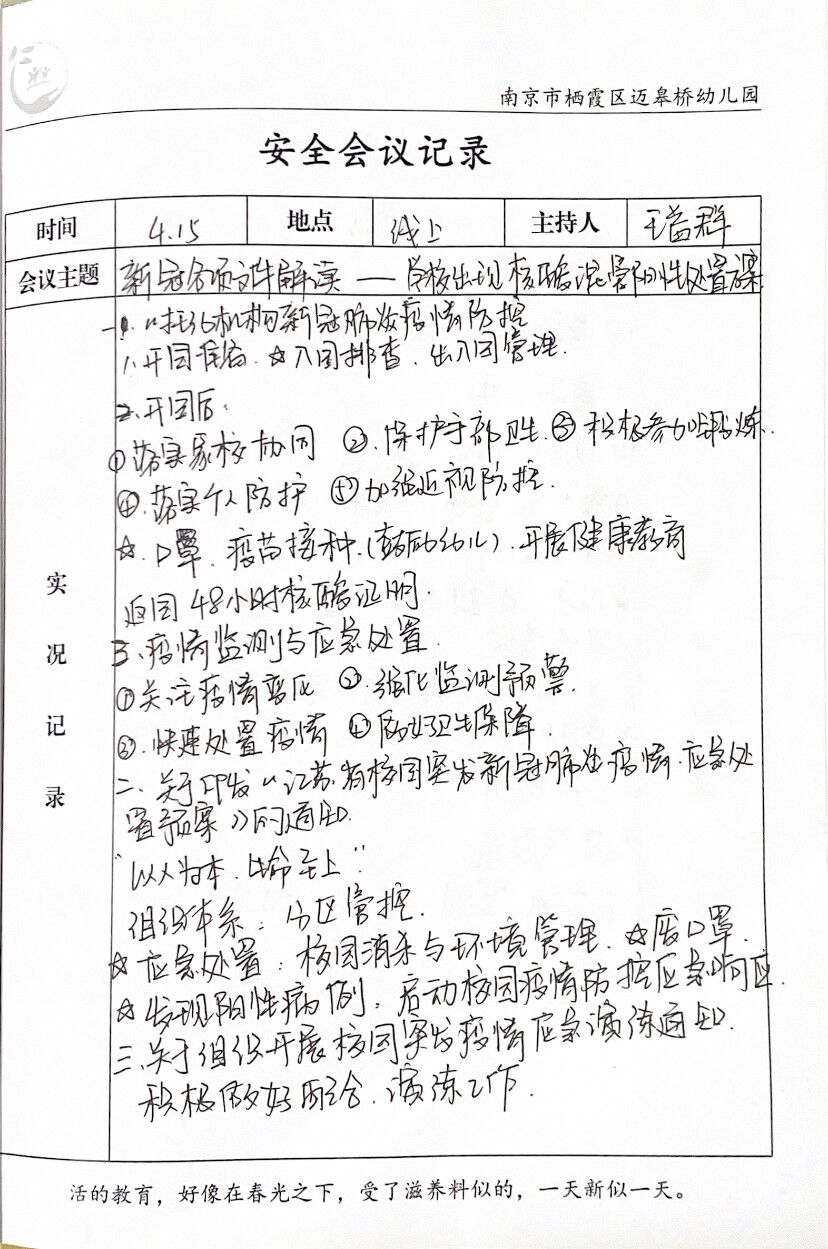 南京市栖霞区迈皋桥幼儿园
安全会议记录
时间 4.15 地点 线上 主持人 王益群
会议主题 新冠各项文件解读 — 学校出现核酸混管阳性处置方案
实况记录
一.“托幼机构新冠肺炎疫情防控
1.开园准备.☆入园排查.出入园管理.
2.开园后:
①落实家校协同 ②.保护手部卫生.③积极参加锻炼.
④.落实个人防护 ⑤加强近视防控.
☆.口罩.疫苗接种.(鼓励幼儿).开展健康教育
返园48小时核酸证明.
3.疫情监测与应急处置.
①关注疫情变化 ②.强化监测预警.
③.快速处置疫情 ④做好卫生保障.
二、关于印发“江苏省校园突发新冠肺炎疫情.应急处
置预案》的通知.
“以人为本.生命至上”.
组织体系:分区管控.
☆应急处置:校园消杀与环境管理.☆废口罩.
☆发现阳性病例,启动校园疫情防控应急响应.
三、关于组织开展校园突发疫情应急演练通知.
积极做好配合.演练工作.
活的教育，好像在春光之下，受了滋养料似的，一天新似一天。